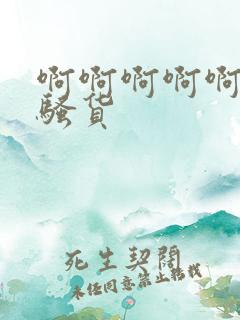 啊啊啊啊啊
骚货
死生契阔
未经同意禁止转载